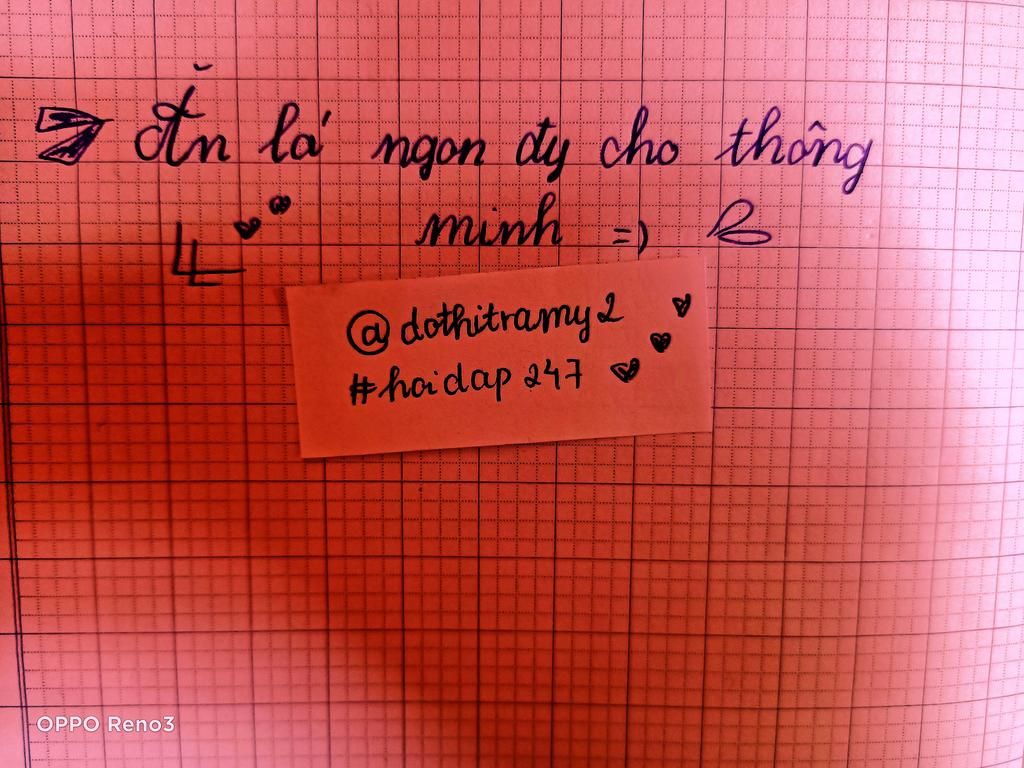 Ăn lá ngon đy cho thông
minh =)
@dothitramy2
#hoidap247
OPPO Reno3